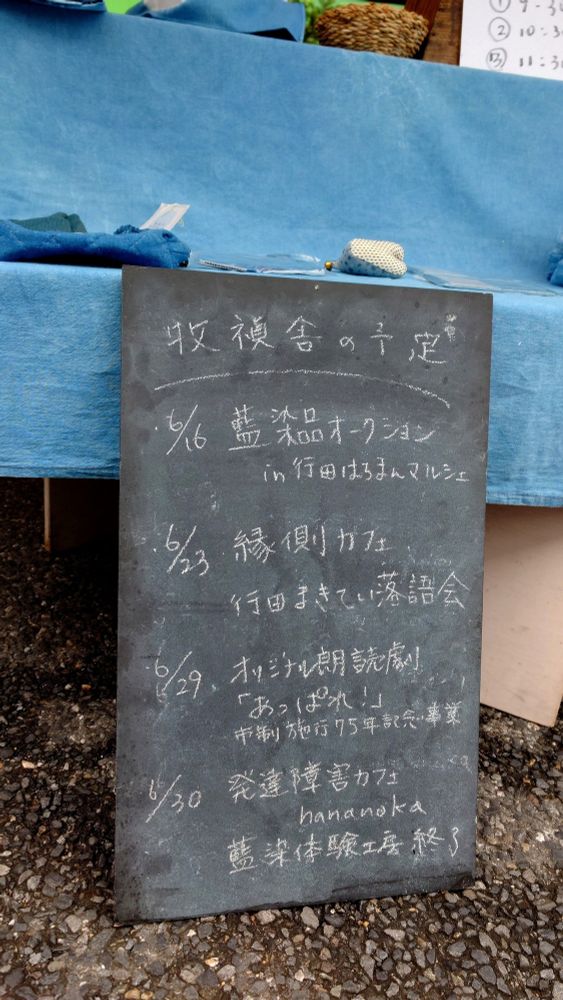 ① 9:30
② 10:30
③ 11:30
牧禎舎の予定
6/16 藍染品オークション
in 行田はちまんマルシェ
6/23 縁側カフェ
行田まきてい落語会
6/29 オリジナル朗読劇
「あっぱれ!」
市制施行75年記念事業
6/30 発達障害カフェ
hananoka
藍染体験工房 終了